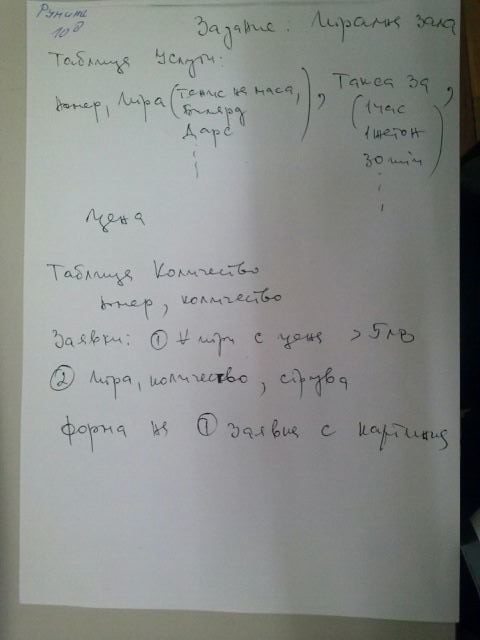 Румит
10 в
Задание: Игрална зала
Таблица Услуги:
Номер, Игра (тенис на маса, билярд Дарс), Такса за (1 час 1 жетон 30 min),
Цена
Таблица Количество
Номер, количество
Заявки: ① игри с цена > 5 лв
② Игра, количество, струва
форма на ① заявка с картинка